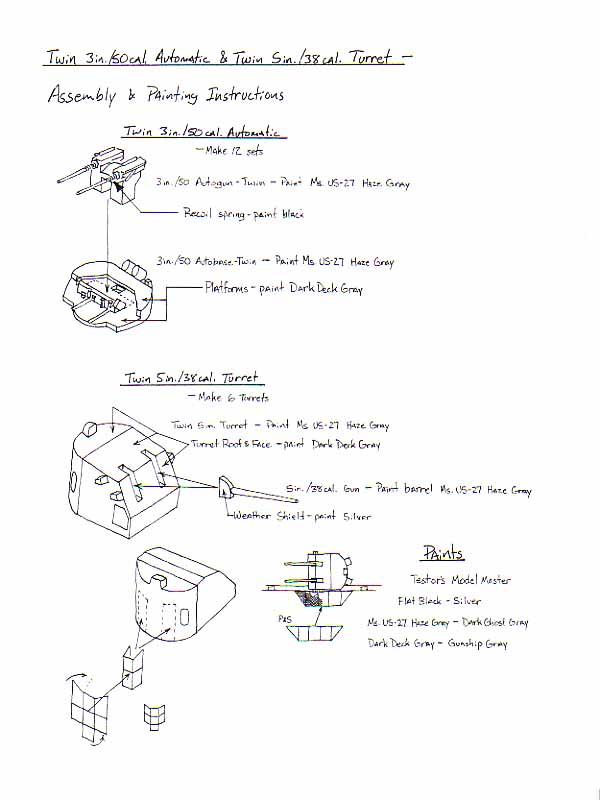 Twin 3in./50cal. Automatic & Twin 5in./38cal. Turret -
Assembly & Painting Instructions
Twin 3in./50cal. Automatic
- Make 12 sets
3in./50 Autogun-Twin - Paint Ms. US-27 Haze Gray
Recoil spring-paint black
3in./50 Autobase-Twin - Paint Ms. US-27 Haze Gray
Platforms - paint Dark Deck Gray
Twin 5in./38cal. Turret
- Make 6 Turrets
Twin 5in. Turret - Paint Ms. US-27 Haze Gray
Turret Roof & Face. - paint Dark Deck Gray
5in./38cal. Gun - Paint barrel Ms. US-27 Haze Gray
Weather Shield-paint Silver
Paints
Testor's Model Master
Flat Black - Silver
Ms. US-27 Haze Grey - Dark Ghost Gray
Dark Deck Gray - Gunship Gray